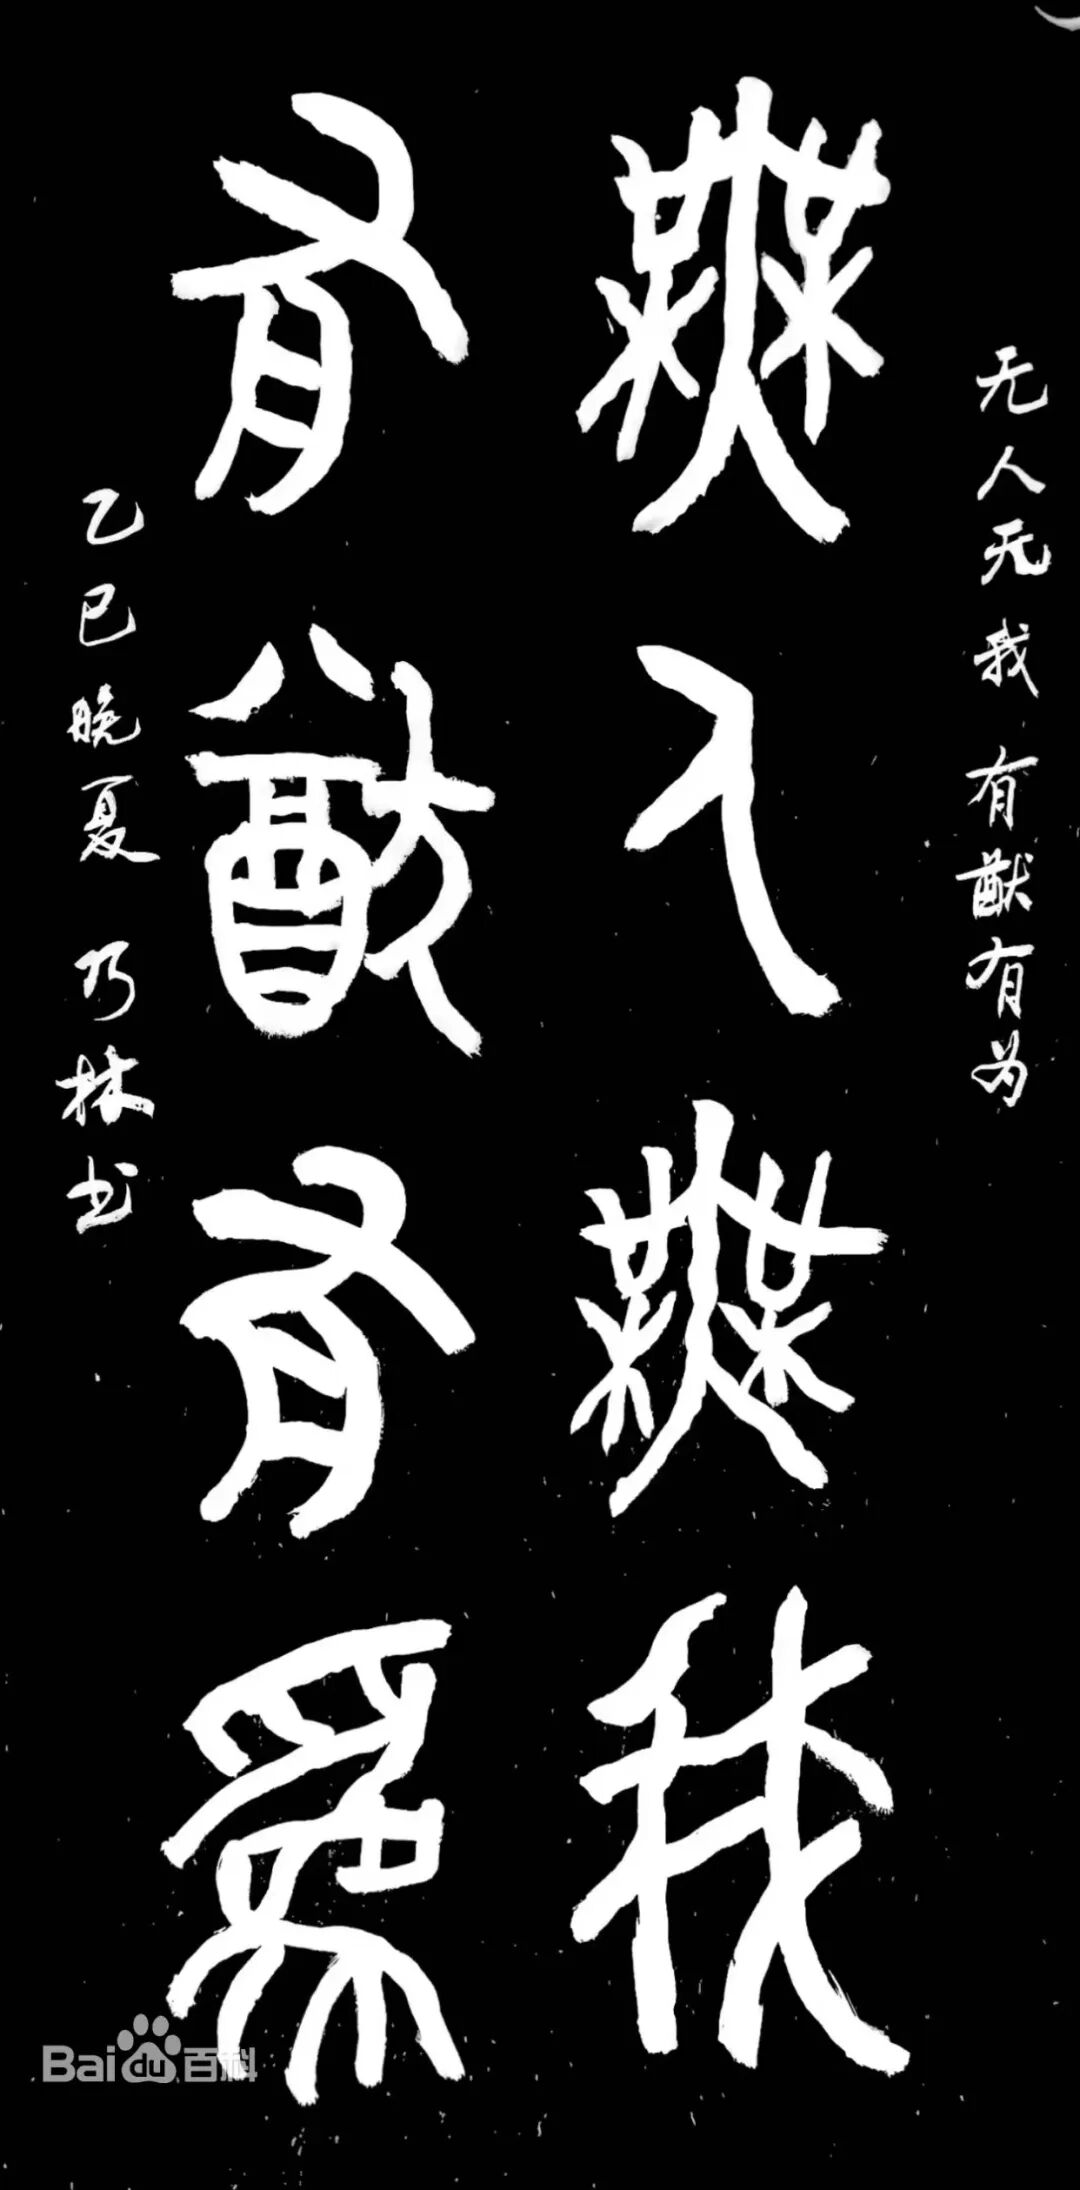 無人無我
有猷有為
无人无我有猷有为
乙巳晚夏 乃林书
Baidu百科